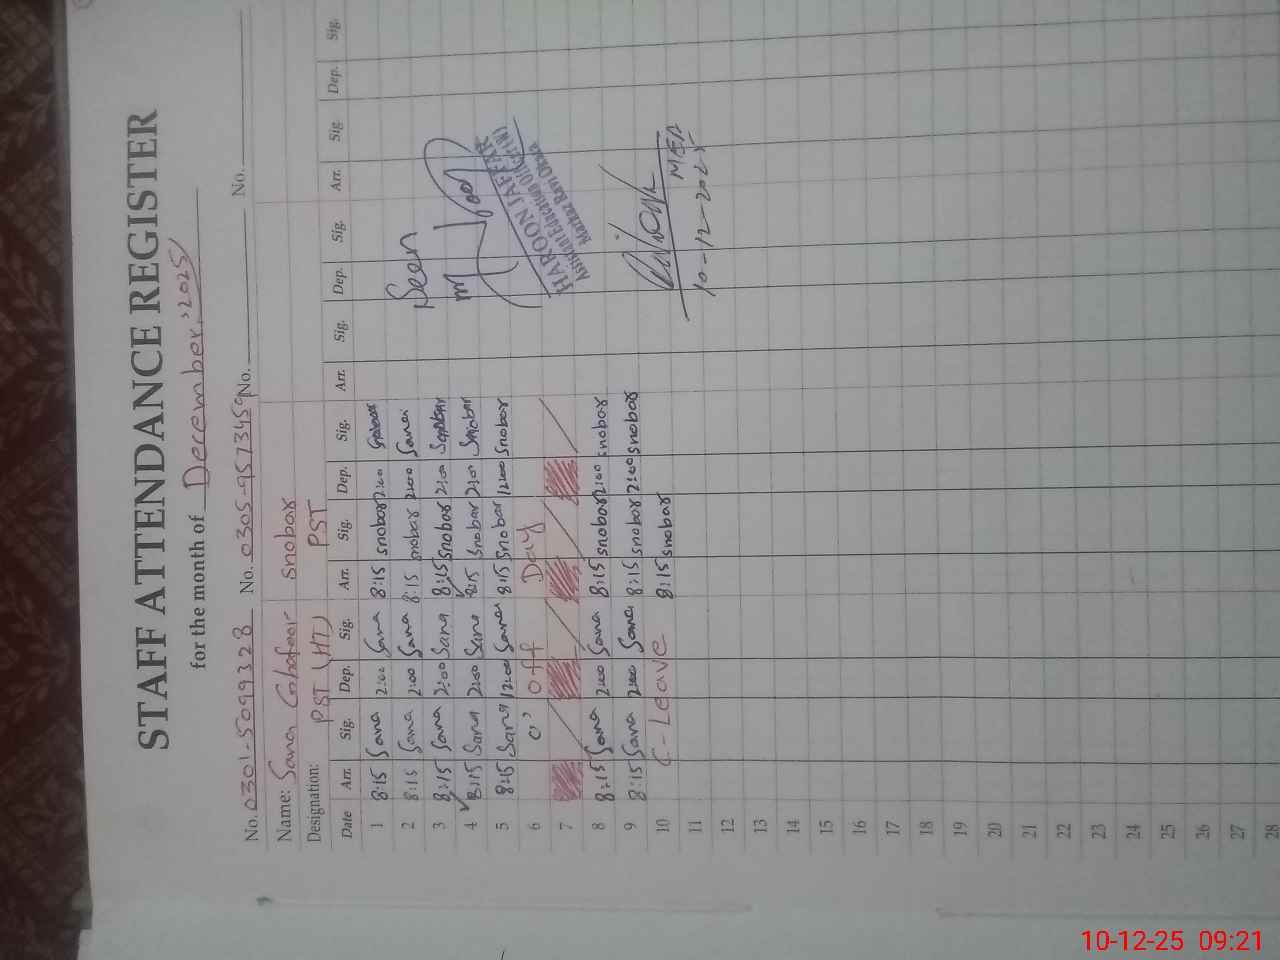 STAFF ATTENDANCE REGISTER
for the month of December, 2025
No. 0301-5099328 No. 0305-9573450 No. No.
Name: Sana Ghafoor snobar
Designation: PST (HT) PST
Date Arr. Sig. Dep. Sig. Arr. Sig. Dep. Sig. Arr. Sig. Dep. Sig. Arr. Sig. Dep. Sig.
1 8:15 Sana 2:00 Sana 8:15 snobar 2:00 snobar
2 8:15 Sana 2:00 Sana 8:15 snobar 2:00 Sana
3 8:15 Sana 2:00 Sana 8:15 Snobar 2:00 Snobar
4 8:15 Sana 2:00 Sana 8:15 Snobar 2:00 Snobar
5 8:15 Sana 12:00 Sana 8:15 Snobar 12:00 Snobar
6 off Day
7
8 8:15 Sana 2:00 Sana 8:15 snobar 2:00 snobar
9 8:15 Sana 2:00 Sana 8:15 snobar 2:00 snobar
10 C-Leave 8:15 snobar
11
12
13
14
15
16
17
18
19
20
21
22
23
24
25
26
27
28
Seen
HAROON JAFFAR
Assistant Education Officer (W)
Markaz Ravi
MEA
10-12-2025
10-12-25 09:21